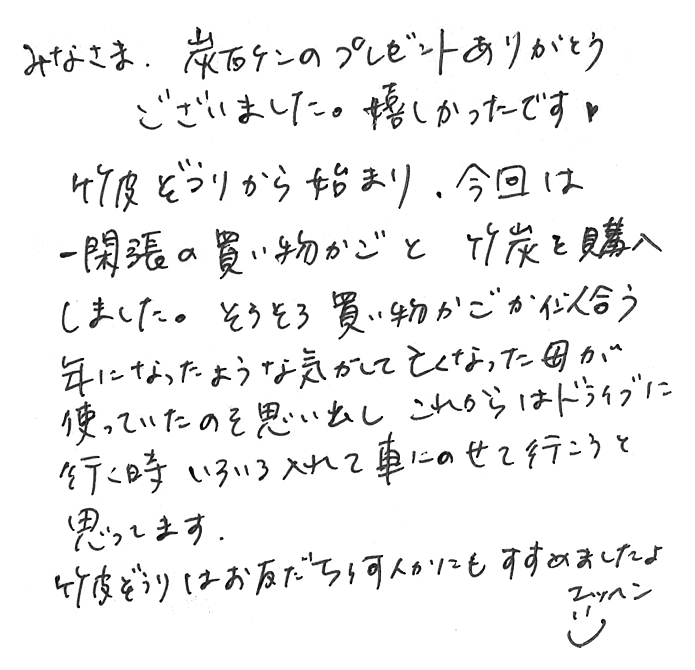 みなさま、炭石ケンのプレゼントありがとう
ございました。嬉しかったです♥
竹皮ぞうりから始まり、今回は
一閑張の買い物かごと 竹炭を購入
しました。そろそろ買い物かごが似合う
年になったような気がして亡くなった母が
使っていたのを思い出しこれからはドライブに
行く時いろいろ入れて車にのせて行こうと
思ってます.
竹皮ぞうりはお友だち何人かにもすすめましたよ
エッヘン